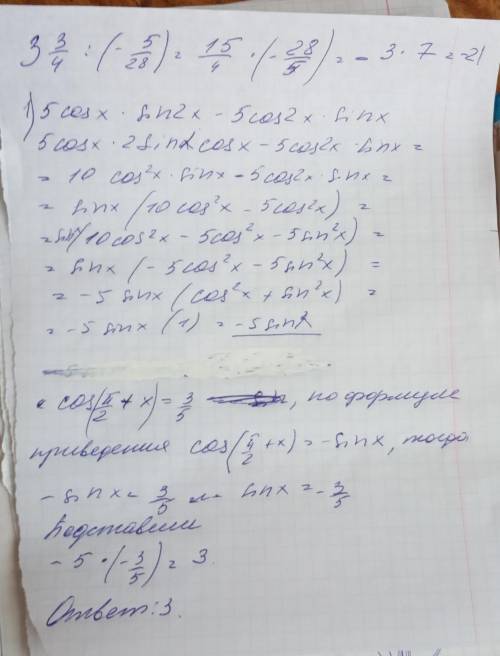 3 3/4 : (- 5/28) = 15/4 · (- 28/5) = - 3 · 7 = -21
1) 5 cosx · sin2x - 5cos2x · sinx
5cosx · 2 sinx cosx - 5cos2x · sinx =
= 10 cos²x · sinx - 5cos2x · sinx =
= sinx (10cos²x - 5cos2x) =
= sinx (10cos²x - 5cos²x - 5sin²x) =
= sinx (- 5cos²x - 5sin²x) =
= -5 sinx (cos²x + sin²x) =
= -5 sinx (1) = -5 sinx
cos(π/2 + x) = 3/5, по формуле
приведения cos(π/2 + x) = -sinx, тогда
- sinx = 3/5 sinx = - 3/5
Подставим
- 5 · (- 3/5) = 3.
Ответ: 3.